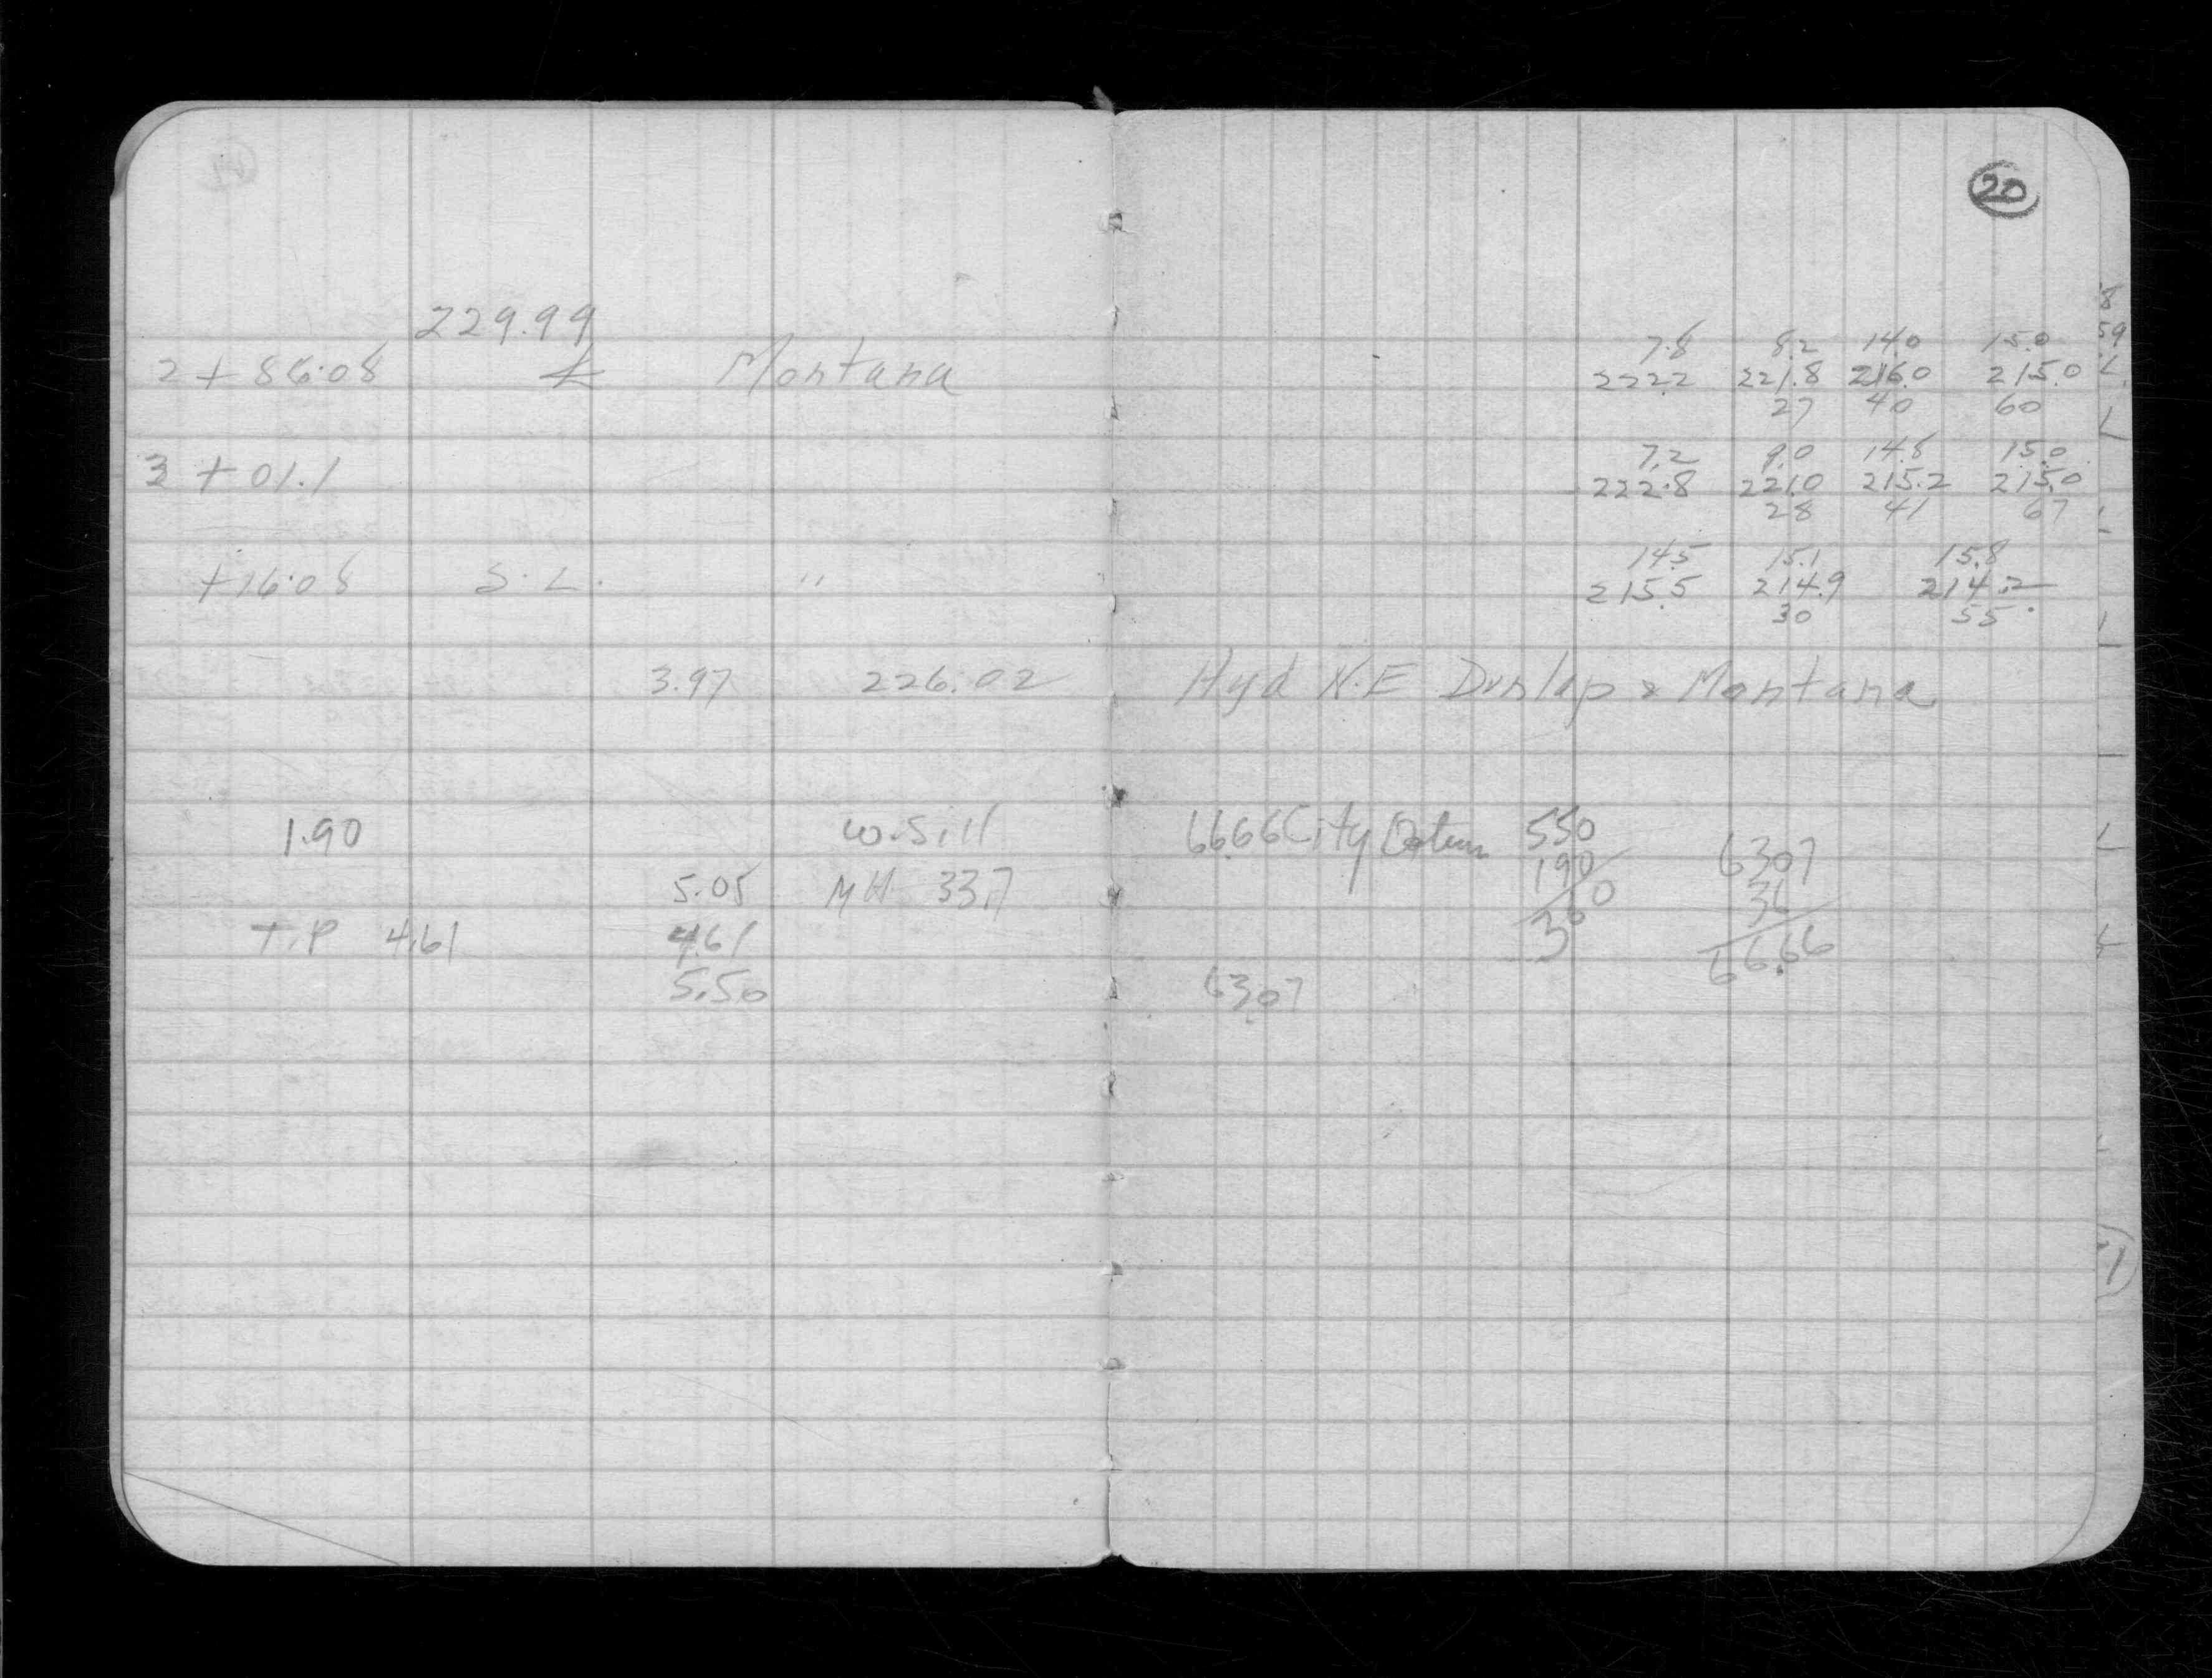 20
229.99
7.8 8.2 14.0 15.0
2+86.08 Montana 222.2 221.8 216.0 215.0
27 40 60
7.2 9.0 14.8 15.0
3+01.1 222.8 221.0 215.2 215.0
28 41 67
14.5 15.1 15.8
+16.08 S.L. " 215.5 214.9 214.2
30 55
3.97 226.02 Hyd N.E Dunlap & Montana
1.90 W.Sill 66.66 City Datum 550
190 6307
5.05 MH 33.7
T.P 4.61 4.61
66.66
5.50 63.07